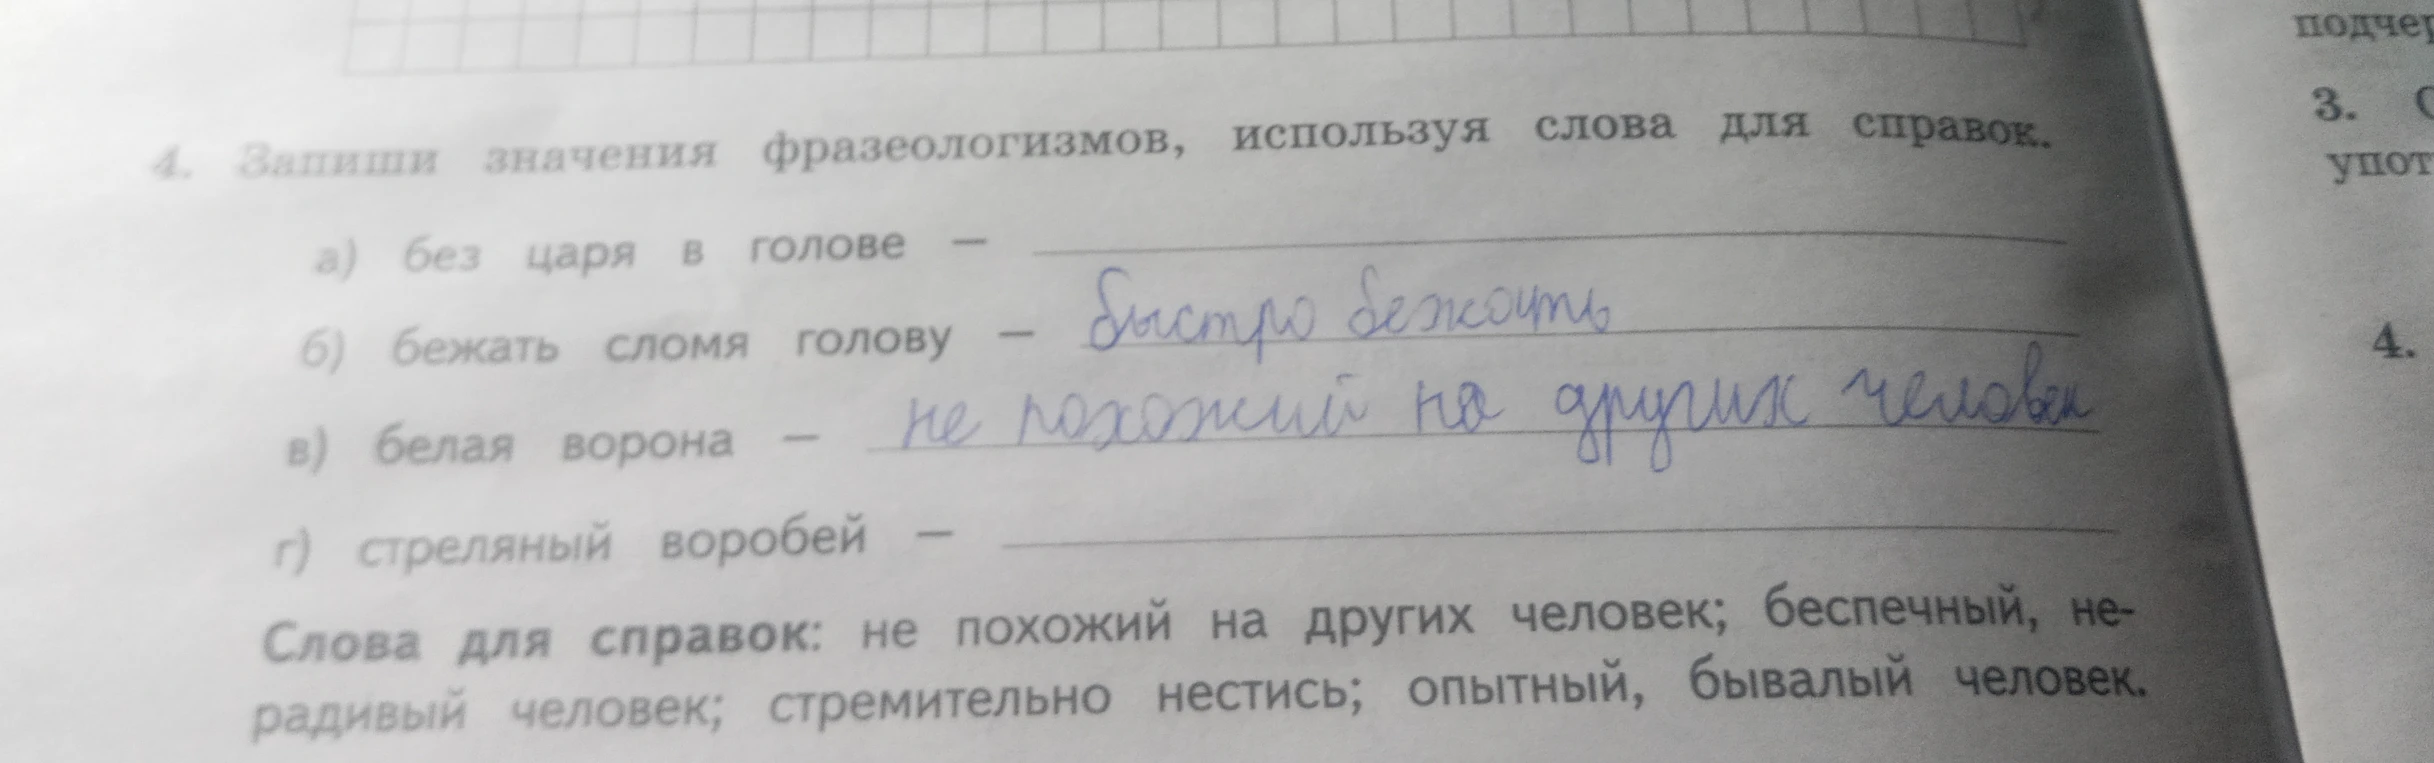 подчер
3. С
упот
4.
4. Запиши значения фразеологизмов, используя слова для справок.
а) без царя в голове —
б) бежать сломя голову — быстро бежать
в) белая ворона — не похожий на других человек
г) стреляный воробей —
Слова для справок: не похожий на других человек; беспечный, не-
радивый человек; стремительно нестись; опытный, бывалый человек.